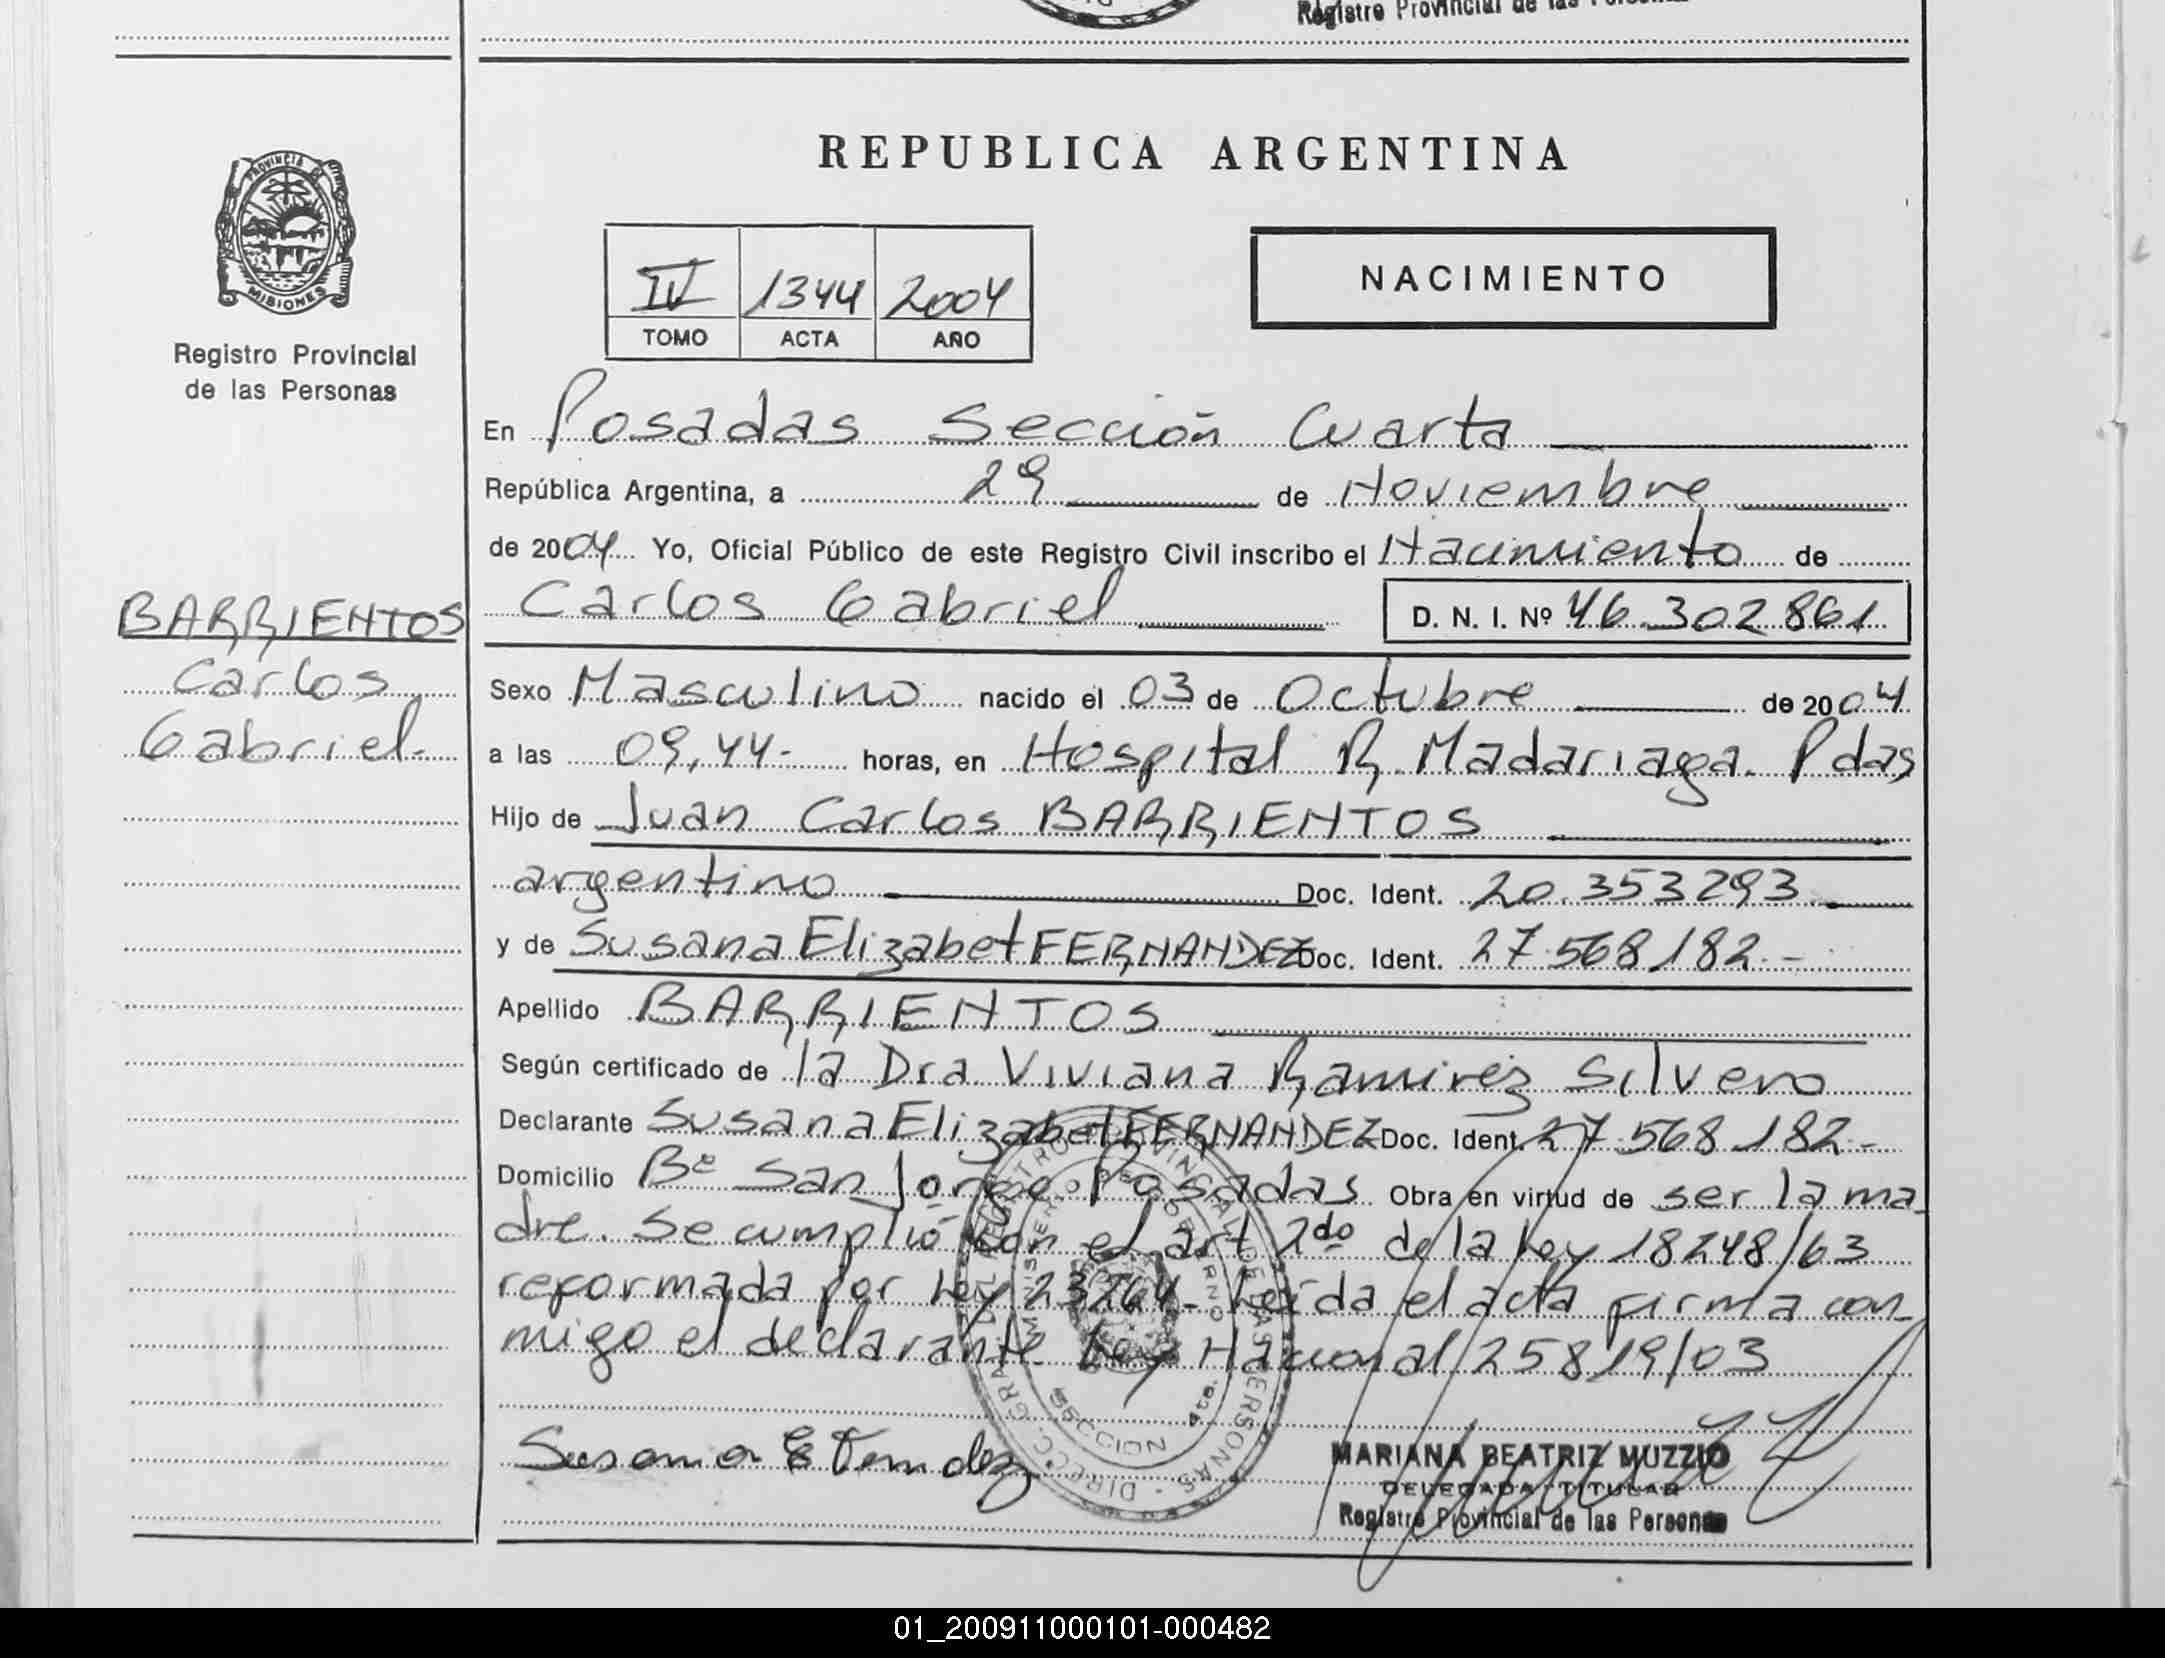 Registro Provincial de las Personas
REPUBLICA ARGENTINA
PROVINCIA DE
MISIONES
Registro Provincial
de las Personas
IV 1344 2004
TOMO ACTA AÑO
NACIMIENTO
En Posadas Sección Cuarta
República Argentina, a 29 de Noviembre
de 2004 Yo, Oficial Público de este Registro Civil inscribo el Nacimiento de
BARRIENTOS
Carlos
Gabriel.-
Carlos Gabriel D. N. I. Nº 46.302861
Sexo Masculino nacido el 03 de Octubre de 2004
a las 09,44- horas, en Hospital R. Madariaga. Pdas
Hijo de Juan Carlos BARRIENTOS
argentino Doc. Ident. 20.353293.
y de Susana Elizabet FERNANDEZ Doc. Ident. 27.568182.-
Apellido BARRIENTOS
Según certificado de la Dra Viviana Ramirez Silvero
Declarante Susana Elizabet FERNANDEZ Doc. Ident. 27.568.182.-
Domicilio Bº San Jorge Posadas Obra en virtud de ser la ma_
dre. Se cumplió con el art 2do de la ley 18248/63
reformada por ley 23764- Leída el acta firma con_
migo el declarante. Ley Nacional 25819/03
DIRECC. GRAL. REGISTRO PROVINCIAL DE LAS PERSONAS
MINISTERIO DE GOBIERNO
SECCION 4ta.
MARIANA BEATRIZ MUZZIO
DELEGADA TITULAR
Registro Provincial de las Personas
01_200911000101-000482